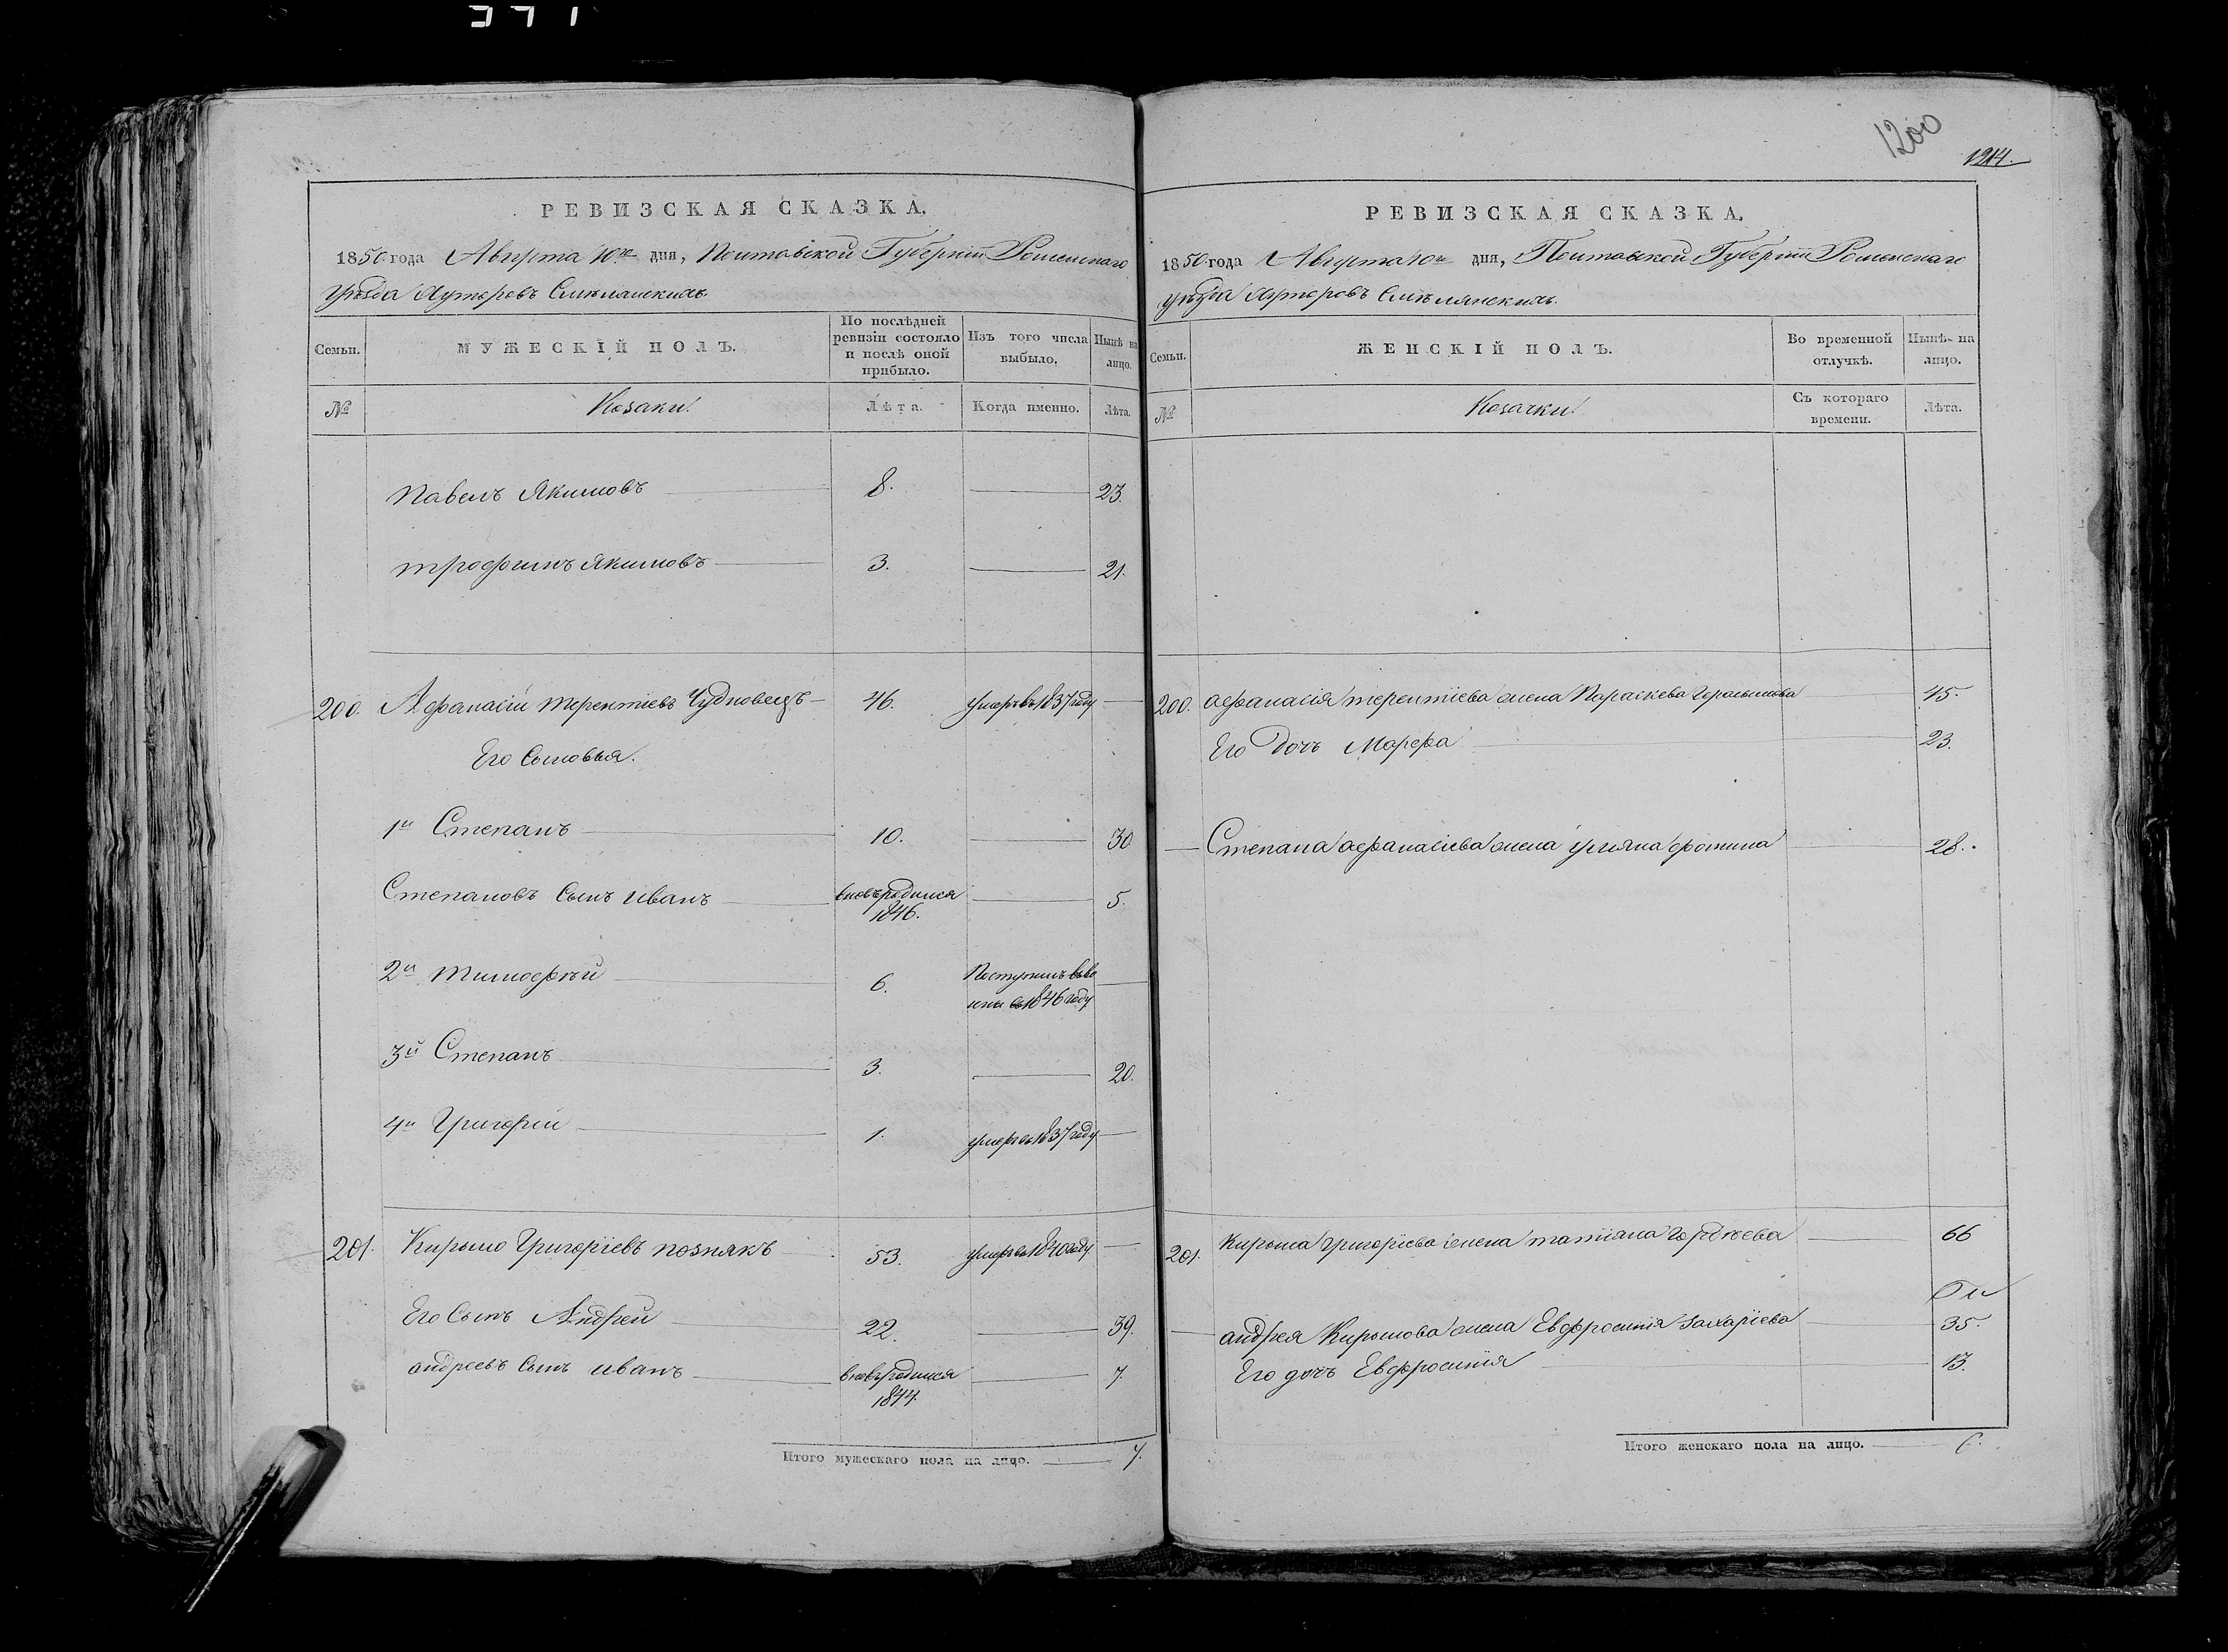 1200
1214.
РЕВИЗСКАЯ СКАЗКА.
1850 года Августа 10го дня, Полтавской Губерніи Роменскаго
уѣзда Хуторовъ Смѣлянскихъ.
Семьи. МУЖЕСКІЙ ПОЛЪ. По послѣдней ревизіи состояло и послѣ оной прибыло. Изъ того числа выбыло. Нынѣ на лицо.
№ Козаки. Лѣта. Когда именно. Лѣта.
Павелъ Якимовъ 8. 23.
трофимъ Якимовъ 3. 21.
200. Афанасій терентіевъ Чудновецъ 46. умеръ въ 1837 году
Его Сыновья.
1й Степанъ 10. 30
Степановъ Сынъ иванъ вновь родился 1846. 5.
2й тимофѣй 6. Поступилъ въ 1846 году
3й Степанъ 3. 20.
4й Григорій 1. умеръ въ 1837 году
201. Кирыло Григоріевъ познякъ 53. умеръ въ 1840 году
Его Сынъ Андрей 22. 39.
андреевъ Сынъ иванъ вновь родился 1844. 7.
Итого мужескаго пола на лицо. 7.
РЕВИЗСКАЯ СКАЗКА.
1850 года Августа 10го дня, Полтавской Губерніи Роменскаго
уѣзда Хуторовъ Смѣлянскихъ.
Семьи. ЖЕНСКІЙ ПОЛЪ. Во временной отлучкѣ. Нынѣ на лицо.
№ Козачки. Съ котораго времени. Лѣта.
200. афанасія терентіева жена Параскева Герасимова 45.
Его дочь Марфа 23.
Степана афанасіева жена улияна фомина 28.
201. Кирыла григоріева жена татіана Гордѣева 66
андрея Кирылова жена Евфросинія захаріева 35.
Его дочь Евфросинія 13.
Итого женскаго пола на лицо. 6.